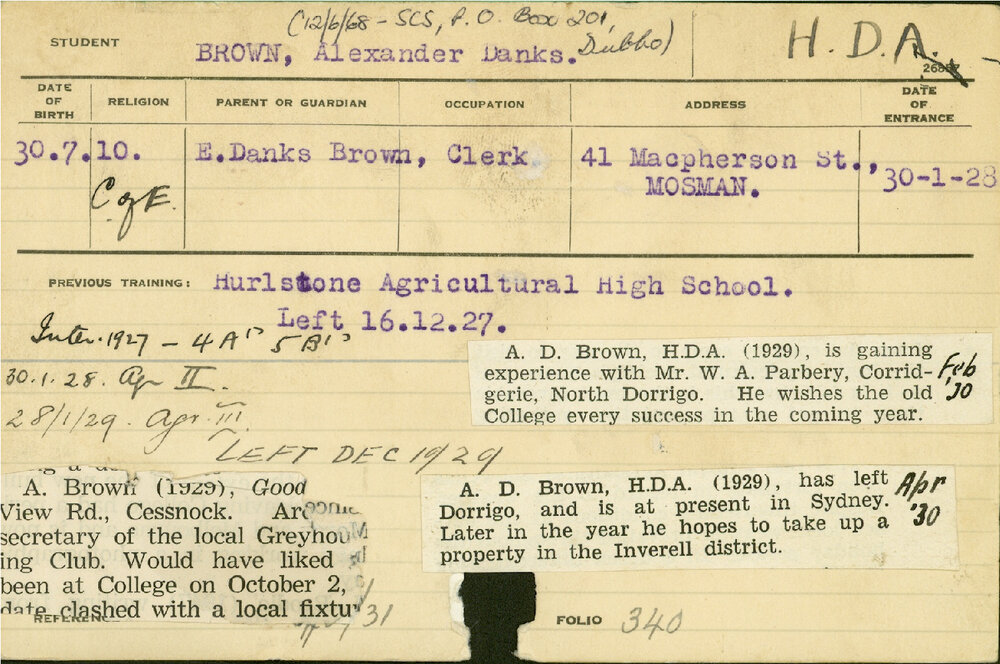 (12/6/68 - SCS, P.O. Box 201, Dubbo)
STUDENT BROWN, Alexander Danks. H.D.A.
DATE OF BIRTH RELIGION PARENT OR GUARDIAN OCCUPATION ADDRESS DATE OF ENTRANCE
30.7.10. E.Danks Brown, Clerk 41 Macpherson St., 30-1-28
MOSMAN.
C of E.
PREVIOUS TRAINING: Hurlstone Agricultural High School.
Left 16.12.27.
Inter. 1927 - 4 A's 5 B's
A. D. Brown, H.D.A. (1929), is gaining
experience with Mr. W. A. Parbery, Corrid-
gerie, North Dorrigo. He wishes the old
College every success in the coming year.
Feb '30
30.1.28. Ag II.
28/1/29. Agr. III
LEFT DEC 1929
A. Brown (1929), Good
View Rd., Cessnock. Are
secretary of the local Greyhou
ing Club. Would have liked
been at College on October 2,
date clashed with a local fixtu
A. D. Brown, H.D.A. (1929), has left
Dorrigo, and is at present in Sydney.
Later in the year he hopes to take up a
property in the Inverell district.
Apr '30
REFERENC
31
FOLIO 340